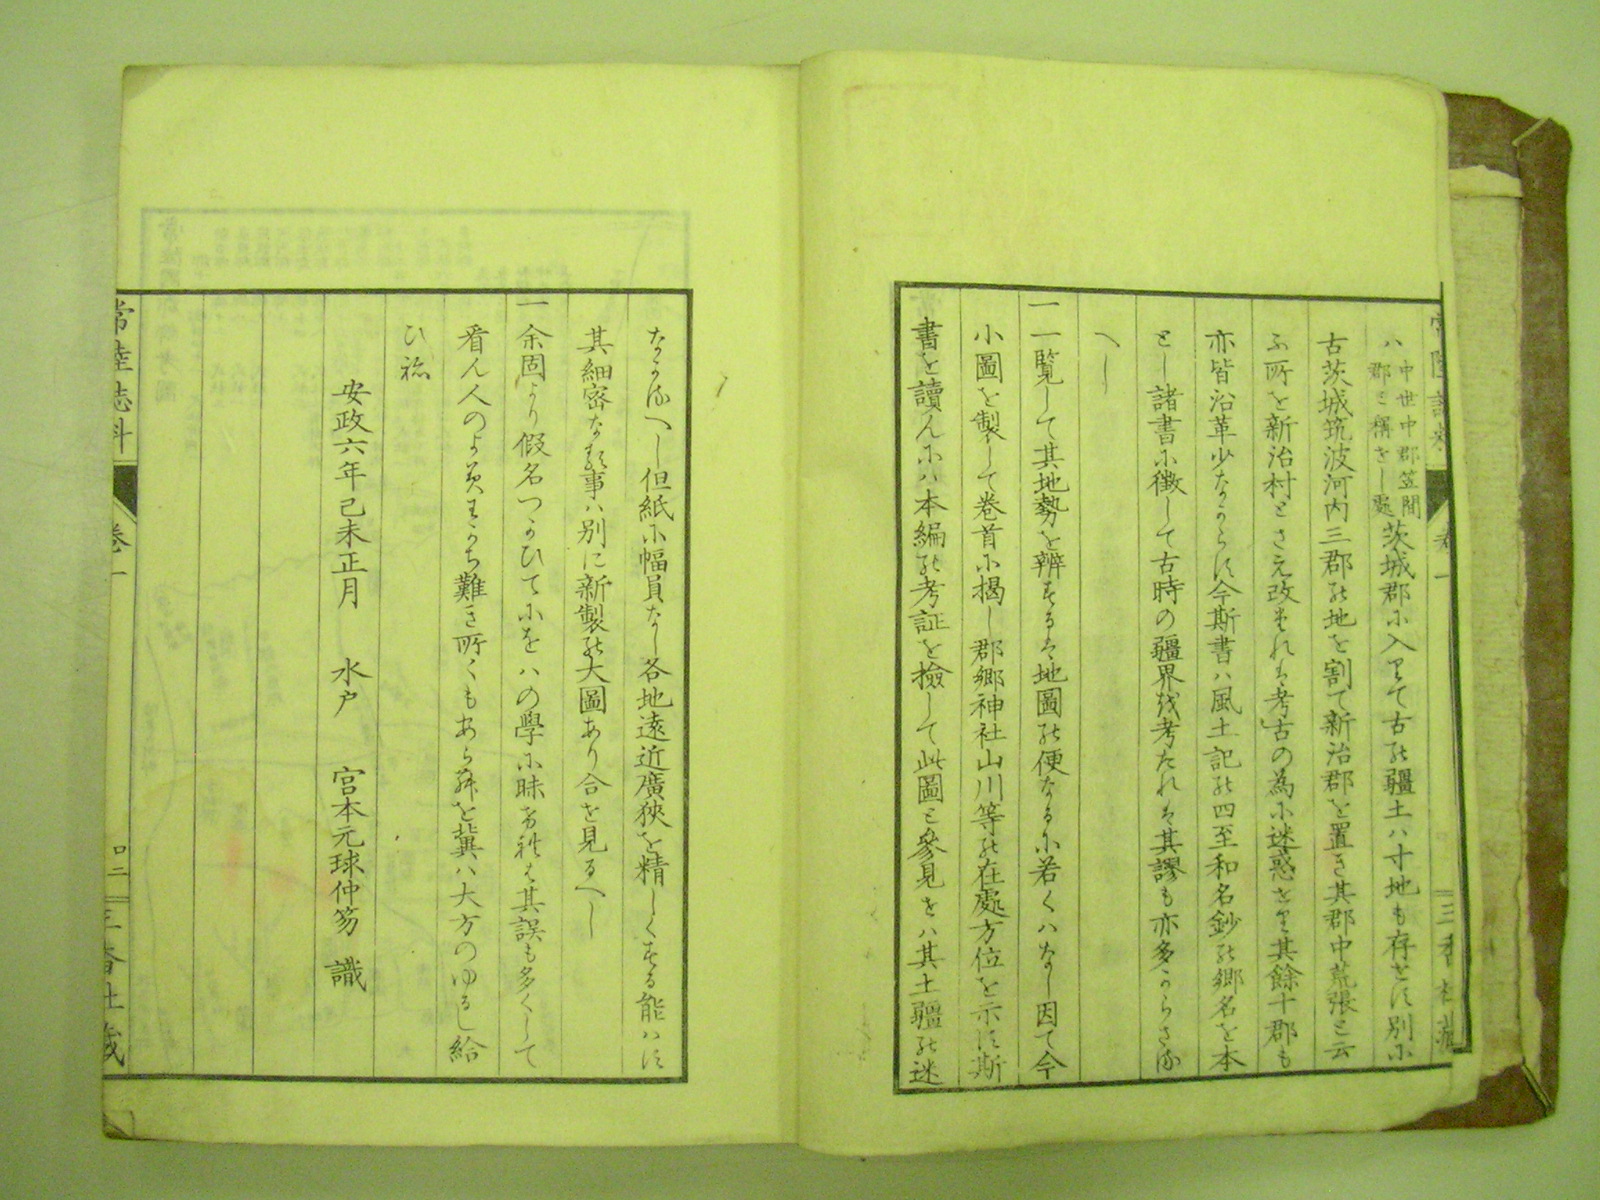 中世中郡笠間
ハ郡ト稱セシ處茨城郡に入りて古の疆土ハ寸地も存せす別に
古茨城筑波河内三郡の地を割て新治郡を置き其郡中荒張と云
ふ所を新治村とさえ改まれは考古の為に迷惑せり其餘十郡も
亦皆沿革少なからす今斯書ハ風土記の四至和名鈔の郷名を本
とし諸書に徴して古時の疆界を考たれは其謬も亦多からさる
へし
一一覧して其地勢を辨するは地圖の便なるに若くハなし因て今
小圖を製して巻首に掲し郡郷神社山川等の在處方位を示す斯
書を讀んにハ本編の考証を撿して此圖と參見せハ其土疆の迷
なかるへし但紙に幅員なし各地遠近廣狹を精しくする能ハす
其細密なる事ハ別に新製の大圖あり合せ見るへし
一余固より假名つかひてにをハの學に昧けれは其誤も多くして
看ん人のよみわかち難き所〱もあらんを冀ハ大方のゆるし給
ひね
安政六年己未正月 水戸 宮本元球仲笏 識
常陸誌料
巻一
口二